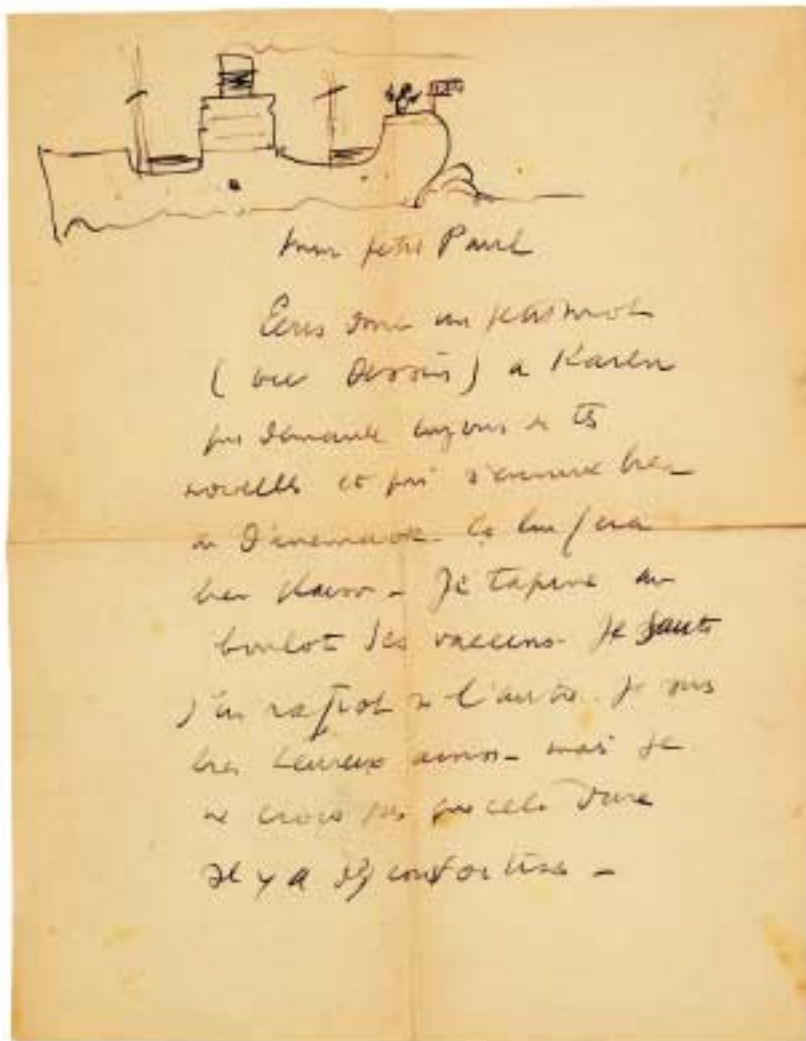 Mon petit Paul
Ecris donc un petit mot
(avec dessin) a Karen
qui demande toujours de tes
nouvelles et qui s'ennuie bien
au Danemark. Ca lui fera
bien plaisir - Je tapine au
boulot des vaccins. Je saute
d'un rafiot à l'autre. Je suis
très heureux ainsi - mais je
ne crois pas que cela dure
Il y a